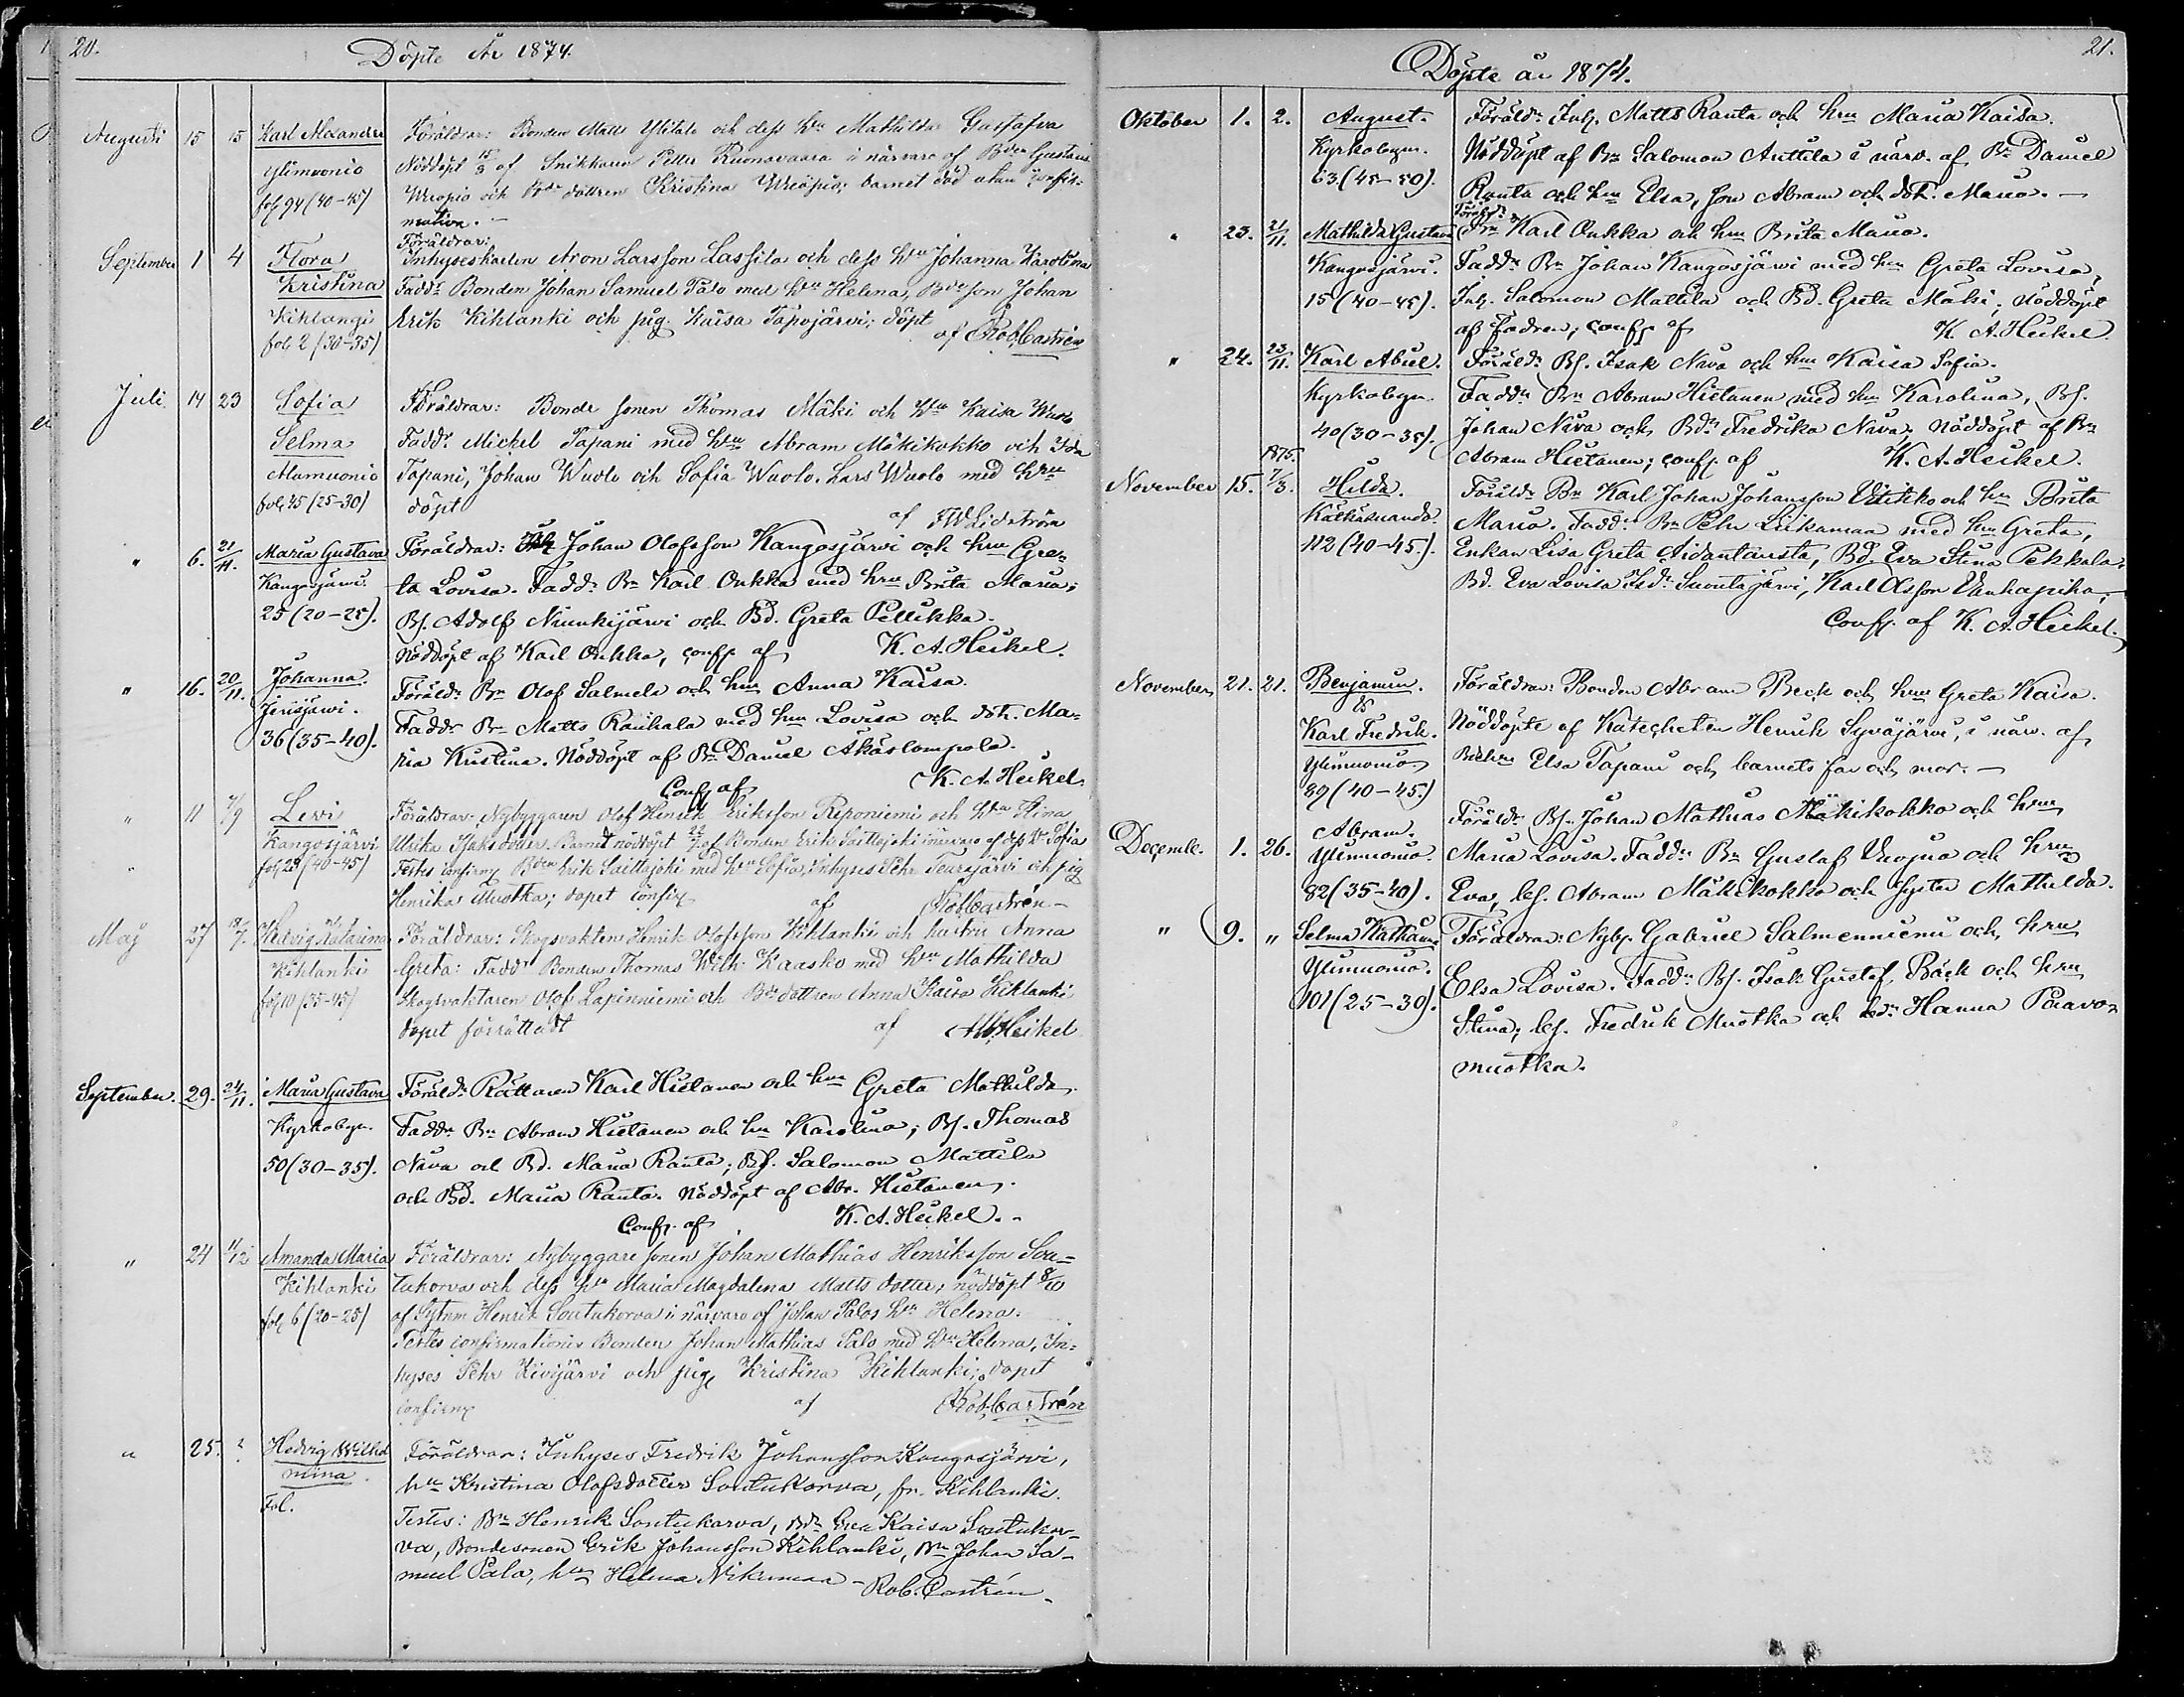 20.
Döpte År 1874.
Augusti 15 15 Karl Alexander Föräldrar: Bonden Matts Ylitalo och dess Hu Mathilda Gustafva
Ylimuonio Nöddöpt af Snikkaren Petter Ruonavaara i närvaro af Bden Gustava
fol 94 (40-45) Wuopio och Bde dottren Kristina Wuopio; barnet död utan confir-
mation.
Föräldrar:
September 1 4 Flora Inhyseskarlen Aron Larsson Lassila och dess Hu Johanna Karolina
Kristina Fadd: Bonden Johan Samuel Palo med Hu Helena, Bde son Johan
Kihlangi Erik Kihlanki och pig. Kaisa Tapojärvi; döpt
fol 2 (30-35) af Rob Castrén
Juli 14 23 Sofia Föräldrar: Bonde sonen Thomas Mäki och Hu Kaisa Wuolo
Selma Fadd: Michel Tapani med Hu Abram Mäkikokko och Ida
Alamuonio Tapani, Johan Wuolo och Sofia Wuolo. Lars Wuolo med Hu
fol 45 (25-30) döpt
af F W Lidström
" 6. 21/11. Maria Gustava Föräldrar: Johan Olofsson Kangosjärvi och hru Gre-
Kangosjärvi. ta Lovisa. Fadd: Bn Karl Onkka med hru Brita Maria;
25 (20-25). Bs. Adolf Niunkijärvi och Bd. Greta Pellikka.
Nöddöpt af Karl Onkka, conf. af K. A. Heikel.
" 16. 20/11. Johanna. Föräldr Bn Olof Salmela och hru Anna Kaisa.
Jerisjärvi. Fadd: Bn Matts Rauhala med hru Lovisa och dotr. Ma-
36 (35-40). ria Kristina. Nöddöpt af Bn Daniel Äkäslompola.
Conf af K. A. Heikel.
" 11 7/9 Levi Föräldrar: Nybyggaren Olof Henrik Eriksson Reponiemi och Hu Stina
Kangosjärvi Ulrika Isaksdotter. Barnet nöddöpt af Bonden Erik Saittajoki i närvaro af dess Hu Sofia
fol 23 (40-45) Testes confirm Bden Erik Saittajoki med Hu Sofia, Inhyses Pehr Teurajärvi och pig
Henrika Muotka; dopet confirm af Rob Castrén
Maj 27 Hedvig Katarina Föräldrar: Skogsvakten Henrik Olofsson Kihlanki och hustru Anna
Kihlanki Greta: Fadd: Bonden Thomas Wilh: Kaasko med Hu Mathilda
fol 10 (35-45) Skogsvaktaren Olof Lapinniemi och Bde dottren Anna Kaisa Kihlanki
dopet förrättadt af Heikel
September. 29. 24/11. Maria Gustava Föräldr Rättaren Karl Hietanen och hru Greta Mathilda,
Kyrkobyn. Fadd: Bn Abram Hietanen och hu Karolina; Bs. Thomas
50 (30-35). Näva och Bd. Maria Ranta; Bs. Salomon Mattila
och Bd. Maria Ranta. Nöddöpt af Abr. Hietanen.
Conf. af K. A. Heikel.
" 24 11/12 Amanda Maria Föräldrar: Nybyggare sonen Johan Mathias Henriksson Sou-
Kihlanki tukorva och dess Hu Maria Magdalena Matts dotter, nöddöpt 8/10
fol 6 (20-25) af Henrik Soutukorva i närvaro af Johan Palos Hu Helena.
Testes confirmationis Bonden Johan Mathias Palo med Hu Helena, In-
hyses Pehr Kivijärvi och pig Kristina Kihlanki; dopet
confirm af Rob. Castrén
" 25. ? Hedvig Wilhel Föräldrar: Inhyses Fredrik Johansson Kangosjärvi,
mina. hu Kristina Olofsdotter Soutukorva, fr. Kihlanki.
Fol. Testes: Bn Henrik Soutukorva, Bd Eva Kaisa Soutukor-
va, Bondesonen Erik Johansson Kihlanki, Bn Johan Sa-
muel Palo, hu Helena Nikumaa - Rob. Castrén
21.
Döpte år 1874.
Oktober 1. 2. August. Föräldr: Inh. Matts Ranta och hru Maria Kaisa.
Kyrkobyn. Nöddöpt af Bn Salomon Anttila i närv. af Bn Daniel
63 (45-50). Ranta och hru Elsa, son Abram och dotr. Maria. -
Föräldr:
" 23. 21/11. Mathilda Gustava Bn Karl Onkka och hru Brita Maria.
Kangosjärvi. Fadd: Bn Johan Kangosjärvi med hru Greta Lovisa,
15 (40-45). Inh. Salomon Mattila och Bd. Greta Mäki; Nöddöpt
af Fadren; conf af K. A. Heikel.
" 24. 23/11. Karl Abiel. Föräldr: Bs. Isak Näva och hru Kaisa Sofia.
Kyrkobyn. Fadd: Bn Abram Hietanen med hru Karolina, Bs.
40 (30-35). Johan Näva och Bd Fredrika Näva, Nöddöpt af Bn
1875. Abram Hietanen; conf. af K. A. Heikel.
November 15. 7/3. Hilda. Föräldr: Bn Karl Johan Johansson Vitikko och hru Brita
Kätkäsuando. Maria. Fadd: Bn Pehr Liikamaa med hru Greta,
112 (40-45). Enkan Lisa Greta Aidantausta, Bd. Eva Stina Pekkala.
Bd. Eva Lovisa Suontajärvi, Karl Olsson Vanhapiha,
Conf. af K. A. Heikel.
November 21. 21. Benjamin. Föräldrar: Bonden Abram Beck och hru Greta Kaisa.
Karl Fredrik. Nöddöpte af Katecheten Henrik Syväjärvi, i närv. af
Ylimuonio Elsa Tapani och barnets far och mor. -
89 (40-45.)
Abram. Föräldr Bs. Johan Mathias Mäkikokko och hru
Decemb. 1. 26. Ylimuonio. Maria Lovisa. Fadd: Bn Gustaf Vuojua och hru
82 (35-40). Eva, bs. Abram Mäkikokko och syster Mathilda.
" 9. " Selma Katharina Föräldrar: Nyby. Gabriel Salmenniemi och hru
Ylimuonio. Elsa Lovisa. Fadd: Bs. Isak Gustaf Bäck och hru
101 (25-30). Stina; bs. Fredrik Muotka och bd: Hanna Paavo-
muotka.